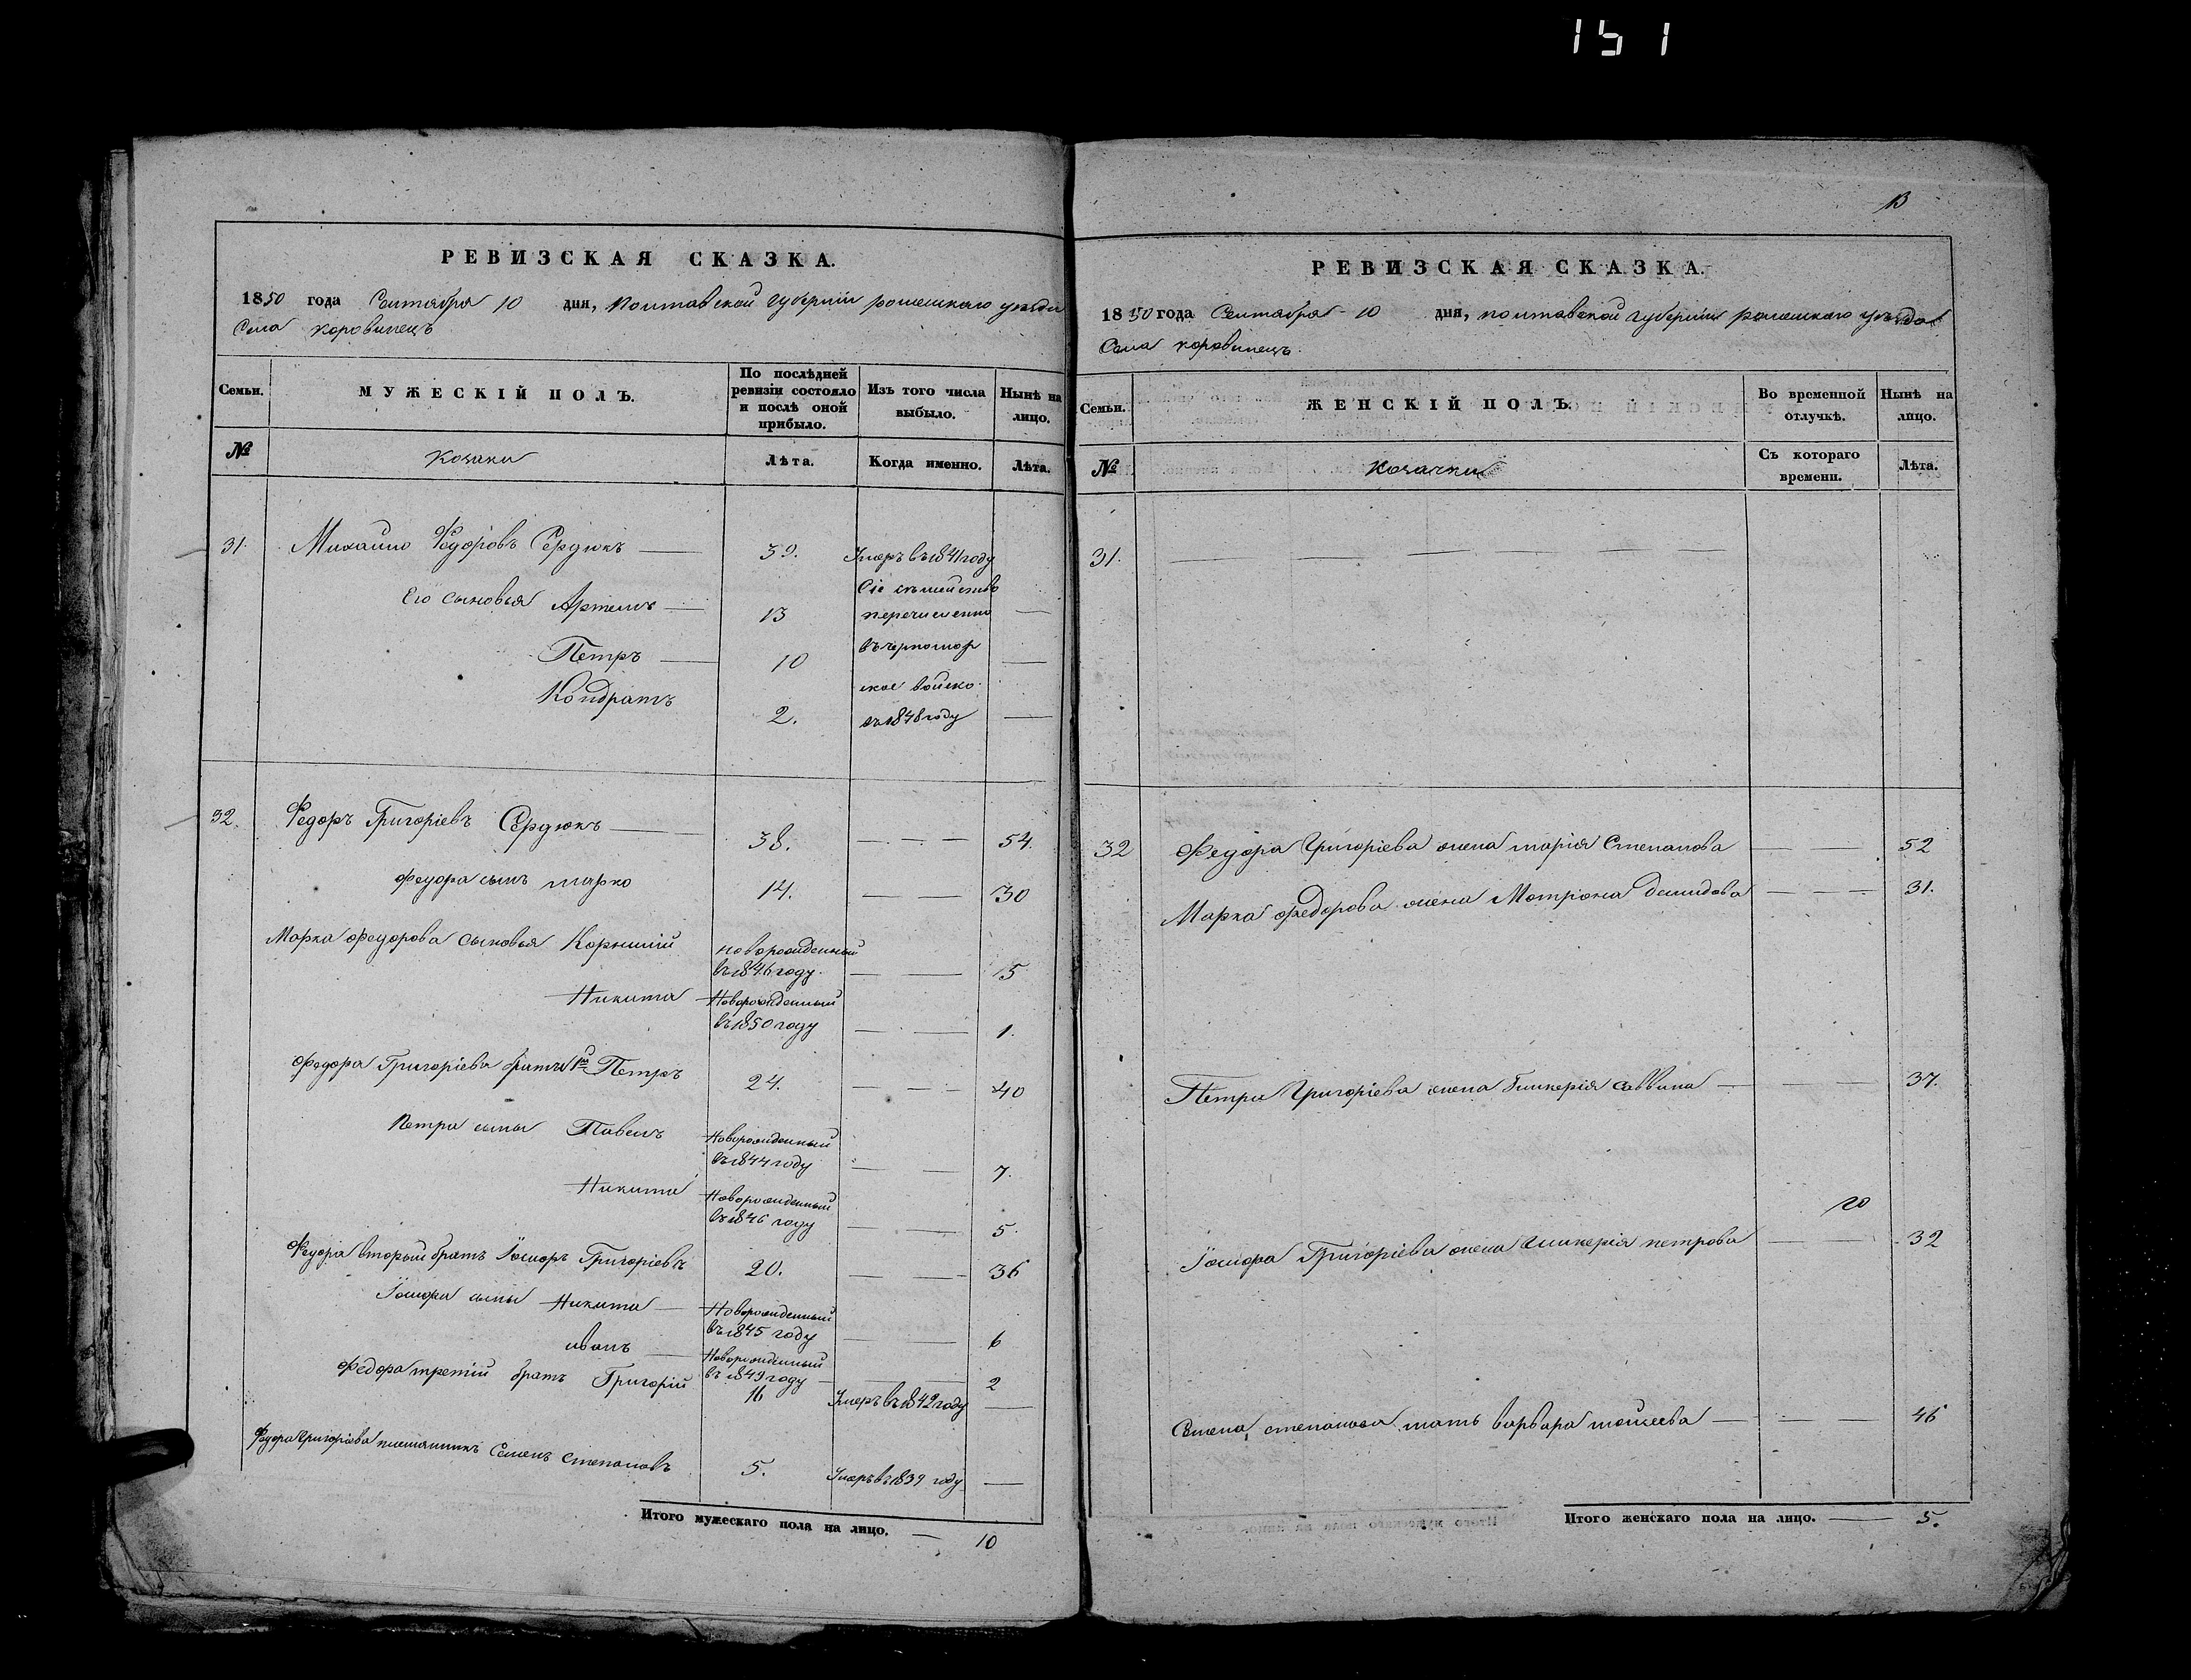 151
РЕВИЗСКАЯ СКАЗКА.
1850 года Сентября 10 дня, Полтавской губерніи роменскаго уезда
Села коровинецъ
Семьи. МУЖЕСКІЙ ПОЛЪ. По послѣдней ревизіи состояло и послѣ оной прибыло. Изъ того числа выбыло. Нынѣ на лицо.
№ Козаки Лѣта. Когда именно. Лѣта.
31. Михайло Федоровъ Сердюкъ 39. Умеръ въ 1841 году
Его сыновья Артемъ 13 Сіе семейство перечисленно
Петръ 10 въ черномор
Кондратъ 2. ское войско въ 1848 году
32. Федоръ Григоріевъ Сердюкъ 38. 54.
Федора сынъ марко 14. 30
Марка Федорова сыновья Корнилій новорожденный въ 1846 году. 5
Никита Новорожденный въ 1850 году 1.
Федора Григоріева братъ 1й Петръ 24. 40
Петра сыны Павелъ Новорожденный въ 1844 году 7.
Никита Новорожденный въ 1846 году 5.
Федора вторый братъ Григоріевъ 20. 36
сыны Никита Новорожденный въ 1845 году 6
иванъ Новорожденный въ 1849 году 2
Федора третій братъ Григорій 16 Умеръ въ 1842 году
Федора Григоріева племянникъ Семенъ Степановъ 5. Умеръ въ 1839 году
Итого мужескаго пола на лицо. 10
13
РЕВИЗСКАЯ СКАЗКА.
1850 года Сентября 10 дня, полтавской губерніи роменскаго уезда
Села коровинецъ.
Семьи. ЖЕНСКІЙ ПОЛЪ. Во временной отлучкѣ. Нынѣ на лицо.
№ Козачки Съ котораго времени. Лѣта.
31.
32 Федора Григоріева жена марія Степанова 52
Марка Федорова жена Мотрона демидова 31.
Петра Григоріева жена Гликерія саввина 37.
Григоріева жена гликерія петрова 32
Семена степанова мать варвара моисеева 46
Итого женскаго пола на лицо. 5.